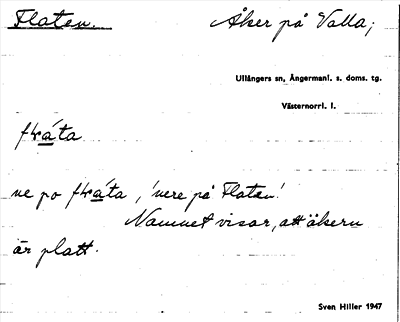 Flaten.
Åker på Valla;
Ullångers sn, Ångermanl. s. doms. tg.
Västernorrl. l.
fláta
ne po fláta, 'nere på Flaten'.
Namnet visar, att åkern
är platt.
Sven Hiller 1947